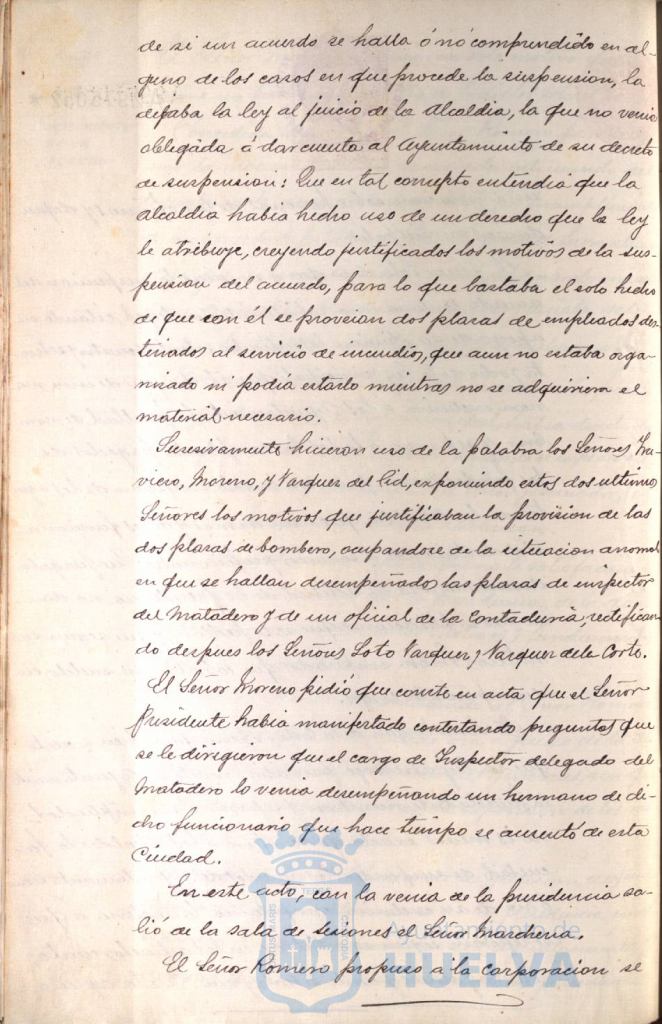 de si un acuerdo se halla ó nó comprendido en al-
guno de los casos en que procede la suspension, la
dejaba la ley al juicio de la Alcaldia, la que no venia
obligada á dar cuenta al Ayuntamiento de su decreto
de suspension: Que en tal concepto entendia que la
alcaldia habia hecho uso de un derecho que la ley
le atribuye, creyendo justificados los motivos de la sus-
pension del acuerdo, para lo que bastaba el solo hecho
de que con él se proveian dos plazas de empleados des-
tinados al servicio de incendios, que aun no estaba orga-
nizado ni podia estarlo mientras no se adquiriera el
material necesario.
Sucesivamente hicieron uso de la palabra los Señores
Moreno, y Vazquez del Cid, exponiendo estos dos ultimos
Señores los motivos que justificaban la provision de las
dos plazas de bombero, ocupandose de la situacion anomal
en que se hallan desempeñados las plazas de inspector
del Matadero y de un oficial de la Contaduria, rectifican-
do despues los Señores Soto Vazquez y Vazquez de la Corte.
El Señor Moreno pidió que conste en acta que el Señor
Presidente habia manifestado contestando preguntas que
se le dirigieron que el cargo de Inspector delegado del
Matadero lo venia desempeñando un hermano de di-
cho funcionario que hace tiempo se ausentó de esta
Ciudad.
En este acto, con la venia de la presidencia sa-
lió de la sala de sesiones el Señor Marchena.
El Señor Romero propuso á la corporacion se
Ayuntamiento de
HUELVA